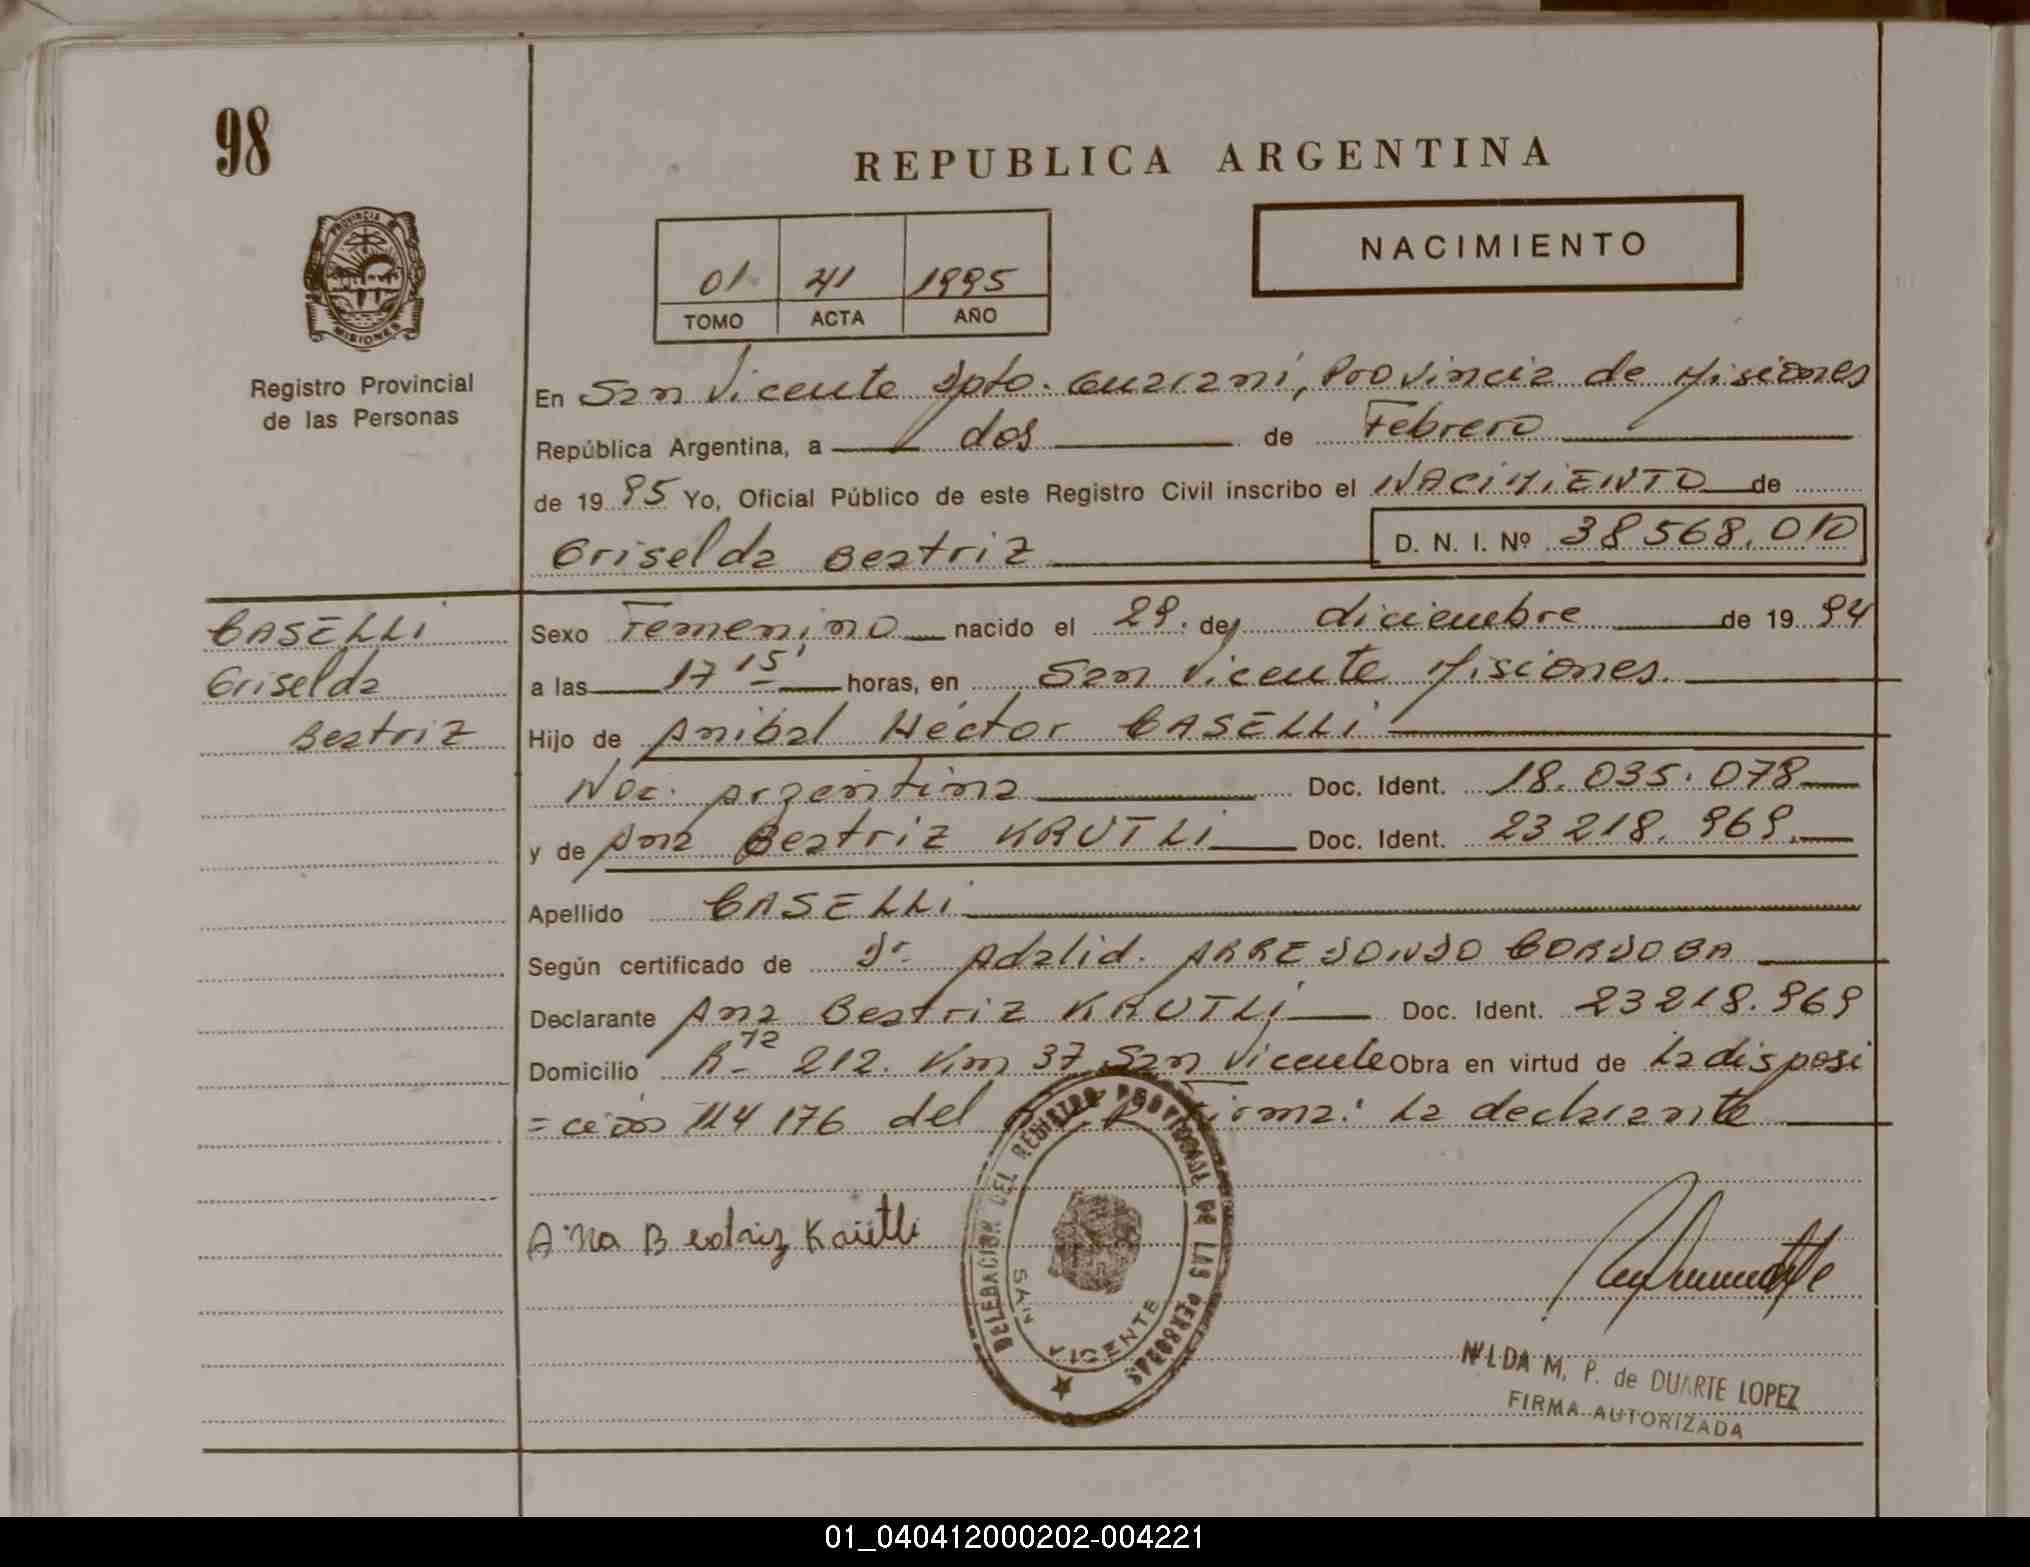 98
REPUBLICA ARGENTINA
PROVINCIA DE
MISIONES
Registro Provincial
de las Personas
01 41 1995
TOMO ACTA AÑO
NACIMIENTO
En San Vicente Dpto. Guaraní, Provincia de Misiones
República Argentina, a dos de Febrero
de 1995 Yo, Oficial Público de este Registro Civil inscribo el NACIMIENTO de
Griselda Beatriz D. N. I. Nº 38568.010
CASELLI
Griselda
Beatriz
Sexo Femenino nacido el 29. de diciembre de 1994
a las 17 15' horas, en San Vicente Misiones.
Hijo de Anibal Héctor CASELLI
Nac. Argentina Doc. Ident. 18.035.078
y de Ana Beatriz KRUTLi Doc. Ident. 23218.969.
Apellido CASELLi
Según certificado de Dr. Adalid. ARREDONDO CORDOBA
Declarante Ana Beatriz KRUTLi Doc. Ident. 23218.969
Domicilio R- 212. Km 37 San Vicente Obra en virtud de La disposi
=ción 114176 del Firma: La declarante
Ana Beatriz
DELEGACION DEL REGISTRO PROVINCIAL DE LAS PERSONAS
SAN VICENTE
NILDA M. P. de DUARTE LOPEZ
FIRMA AUTORIZADA
01_040412000202-004221